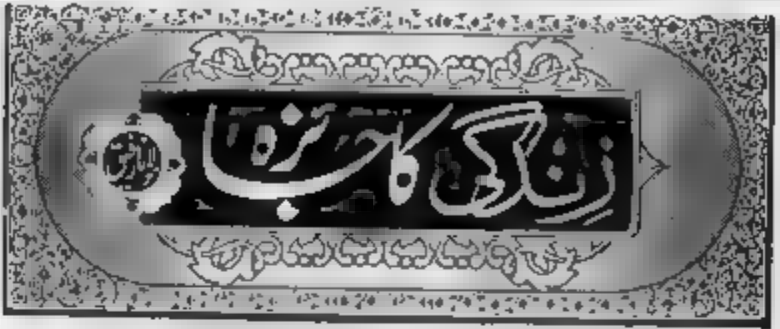 زندگی کا جائزہ